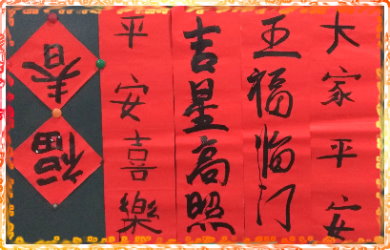 大家平安
五福临门
吉星高照
平安喜樂
春
福